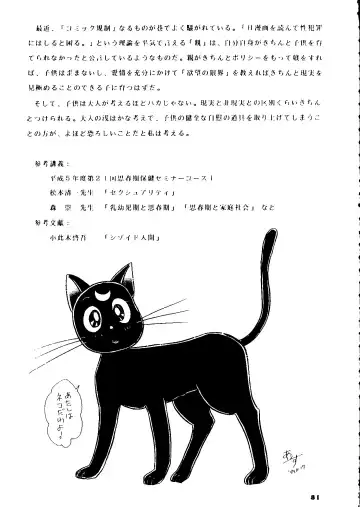 最近、「コミック規制」なるものが巷でよく騒がれている。「H漫画を読んで性犯罪
にはしると困る。」という理論を平気で言える「親」は、自分自身がきちんと子供を育
てられなかったと公言しているようなものだ。親がきちんとポリシーをもって躾をすれ
ば、子供はぼまないし、愛情を充分にかけて「欲望の限界」を教えればきちんと現実を
見極めることのできる子に育つはずだ。
そして、子供は大人が考えるほどバカじゃない。現実と非現実との区別くらいきちん
とつけられる。大人の浅はかな考えで、子供の健全な自慰の道具を取り上げてしまうこ
との方が、よほど恐ろしいことだと私は考える。
参考講義：
平成5年度第21回思春期保健セミナーコースI
松本清一先生 「セクシュアリティ」
森 崇 先生 「乳幼児期と思春期」「思春期と家庭社会」 など
参考文献：
小此木啓吾 「シゾイド人間」
あたしは
ネコなのよー
81